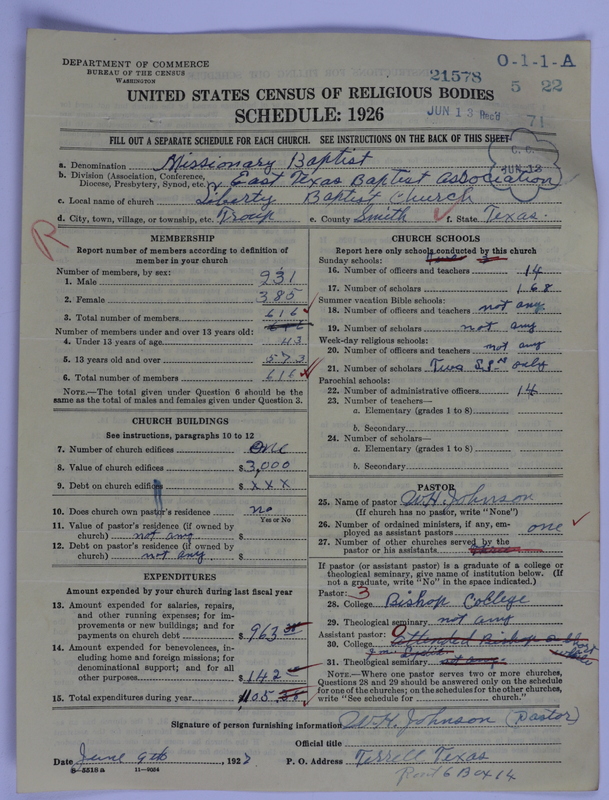 DEPARTMENT OF COMMERCE
BUREAU OF THE CENSUS
WASHINGTON
21578
O-1-1-A
5 22
UNITED STATES CENSUS OF RELIGIOUS BODIES
SCHEDULE: 1926
JUN 13 Rec'd
71
FILL OUT A SEPARATE SCHEDULE FOR EACH CHURCH. SEE INSTRUCTIONS ON THE BACK OF THIS SHEET
a. Denomination Missionary Baptist
b. Division (Association, Conference, Diocese, Presbytery, Synod, etc.) East Texas Baptist Association
c. Local name of church Liberty Baptist Church
d. City, town, village, or township, etc. Troup e. County Smith f. State Texas.
R
MEMBERSHIP
Report number of members according to definition of
member in your church
Number of members, by sex:
1. Male 231
2. Female 385
3. Total number of members 616
Number of members under and over 13 years old:
4. Under 13 years of age 43
5. 13 years old and over 573
6. Total number of members 616
NOTE.—The total given under Question 6 should be
same as the total of males and females given under Question 3.
CHURCH BUILDINGS
See instructions, paragraphs 10 to 12
7. Number of church edifices One
8. Value of church edifices $3,000
9. Debt on church edifices $ X X X
10. Does church own pastor's residence no
Yes or No
11. Value of pastor's residence (if owned by
church) not any $
12. Debt on pastor's residence (if owned by
church) not any $
EXPENDITURES
Amount expended by your church during last fiscal year
13. Amount expended for salaries, repairs,
and other running expenses; for im-
provements or new buildings; and for
payments on church debt $ 963
14. Amount expended for benevolences, in-
cluding home and foreign missions; for
denominational support; and for all
other purposes $ 142
15. Total expenditures during year 1105
CHURCH SCHOOLS
Report here only schools conducted by this church
Sunday schools:
16. Number of officers and teachers 14
17. Number of scholars 168
Summer vacation Bible schools:
18. Number of officers and teachers not any
19. Number of scholars not any
Week-day religious schools:
20. Number of officers and teachers not any
21. Number of scholars Two S.S. only
Parochial schools:
22. Number of administrative officers 14
23. Number of teachers—
a. Elementary (grades 1 to 8)
b. Secondary
24. Number of scholars—
a. Elementary (grades 1 to 8)
b. Secondary
PASTOR
25. Name of pastor W H Johnson
(If church has no pastor, write "None")
26. Number of ordained ministers, if any, em-
ployed as assistant pastors one
27. Number of other churches served by the
pastor or his assistants
If pastor (or assistant pastor) is a graduate of a college or
theological seminary, give name of institution below. (If
not a graduate, write "No" in the space indicated.)
Pastor: 3
28. College Bishop College
29. Theological seminary not any
Assistant pastor:
30. College attended Bishop
31. Theological seminary not any
NOTE.—Where one pastor serves two or more churches,
Questions 28 and 29 should be answered only on the schedule
for one of the churches; on the schedules for the other churches,
write "See schedule for church."
Signature of person furnishing information W. H. Johnson (Pastor)
Official title
Date June 9th, 1927 P. O. Address Terrell Texas
8-5518 a 11-9024
Rout 6 Box 14